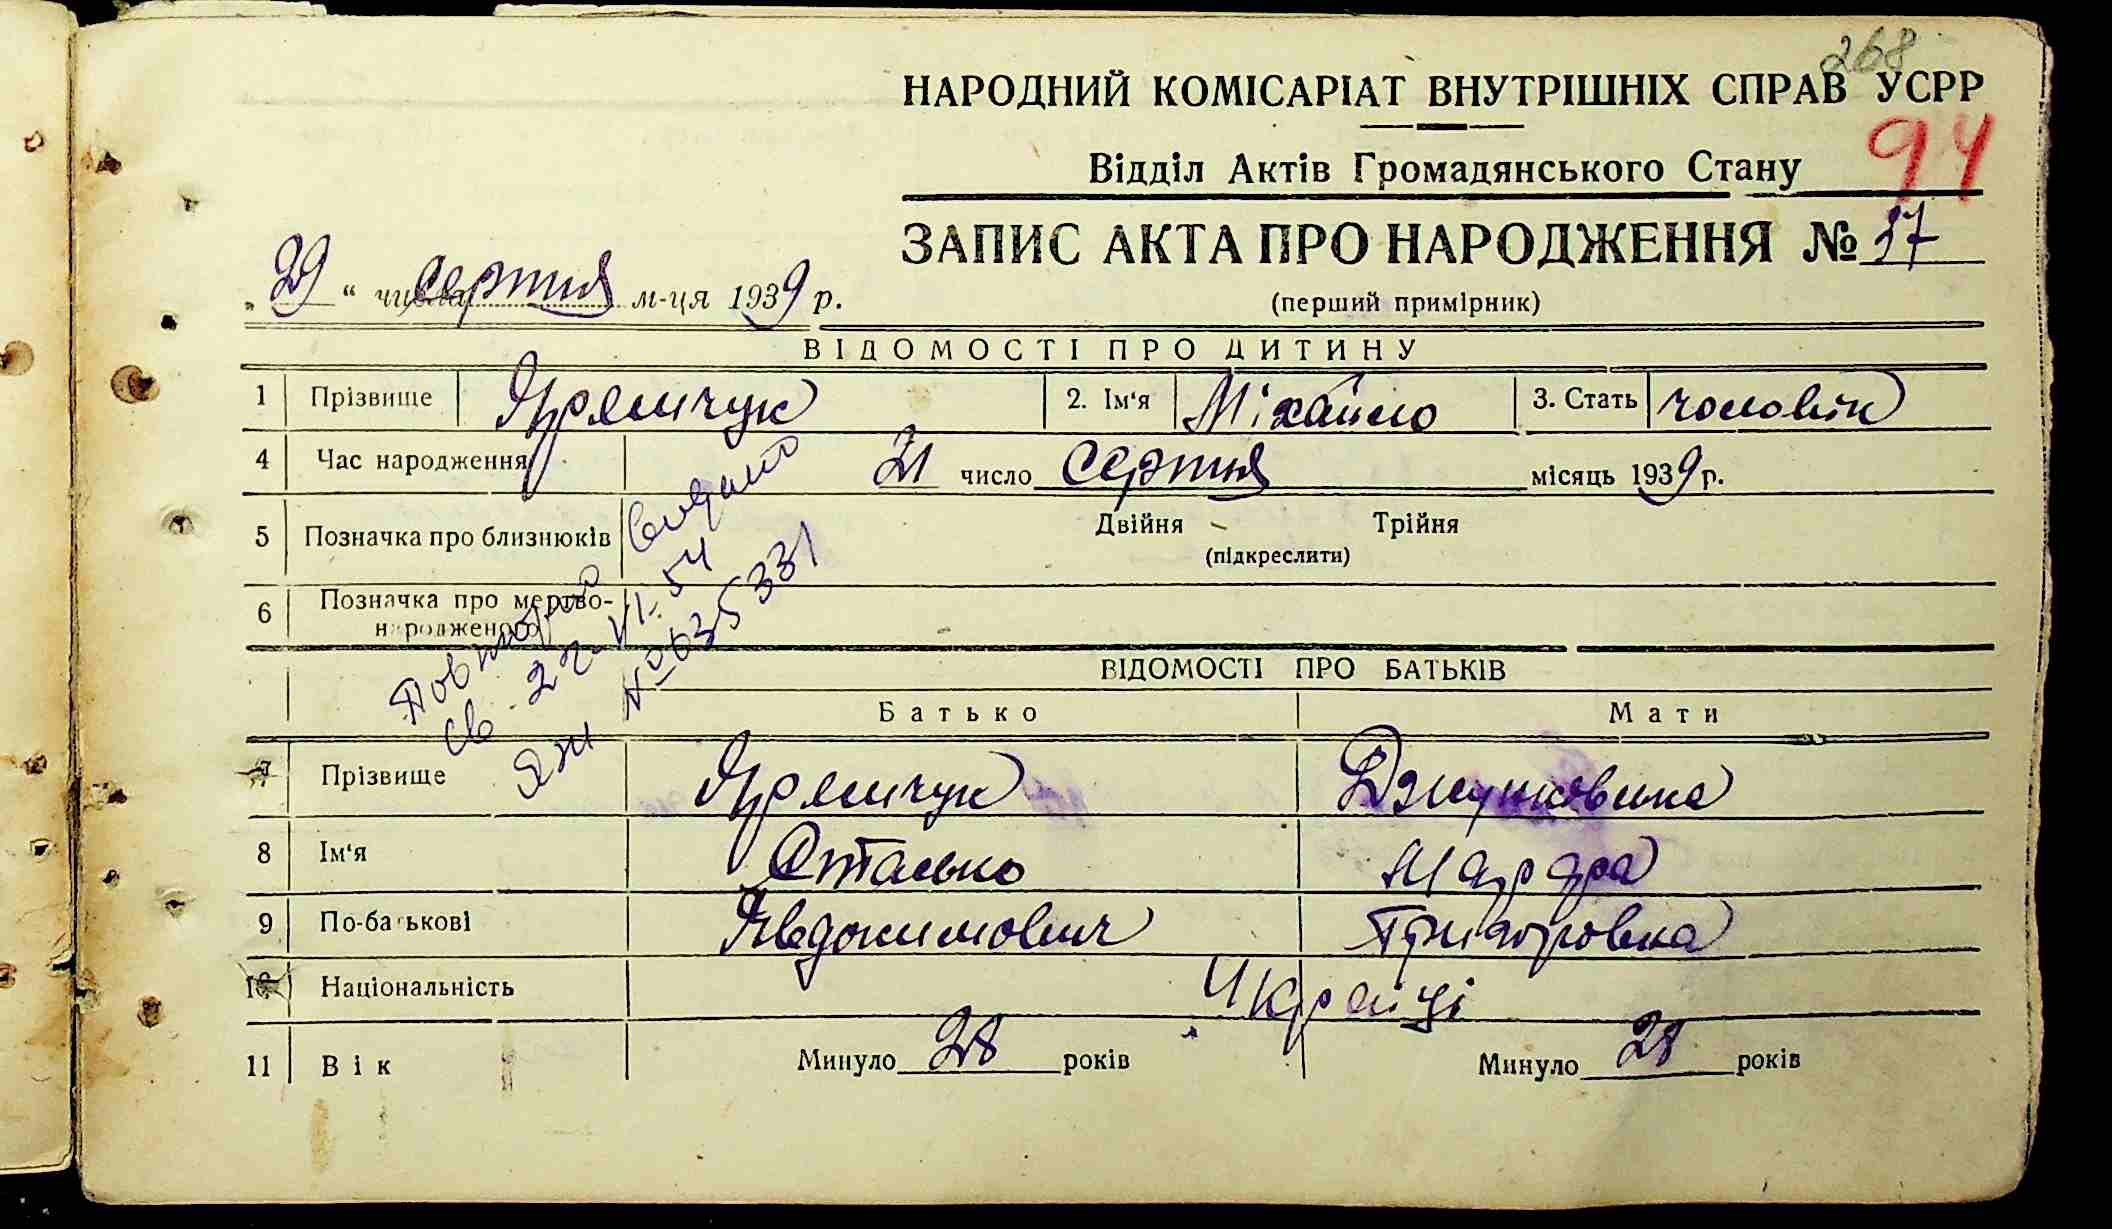 268
НАРОДНИЙ КОМІСАРІАТ ВНУТРІШНІХ СПРАВ УСРР
94
Відділ Актів Громадянського Стану
ЗАПИС АКТА ПРО НАРОДЖЕННЯ № 37
„29“ числа серпня м-ця 1939 р.
(перший примірник)
ВІДОМОСТІ ПРО ДИТИНУ
1 Прізвище Яремчук 2. Ім‘я Міхайло 3. Стать чоловік
4 Час народження 21 число серпня місяць 1939 р.
5 Позначка про близнюків Двійня Трійня
(підкреслити)
6 Позначка про мертво-
народженого
Повторно видано
св. 22-VI-54
ЯЖ № 035331
ВІДОМОСТІ ПРО БАТЬКІВ
Батько Мати
7 Прізвище Яремчук
8 Ім‘я
9 По-батькові Явдокимович
10 Національність Україці
11 Вік Минуло 28 років Минуло 28 років